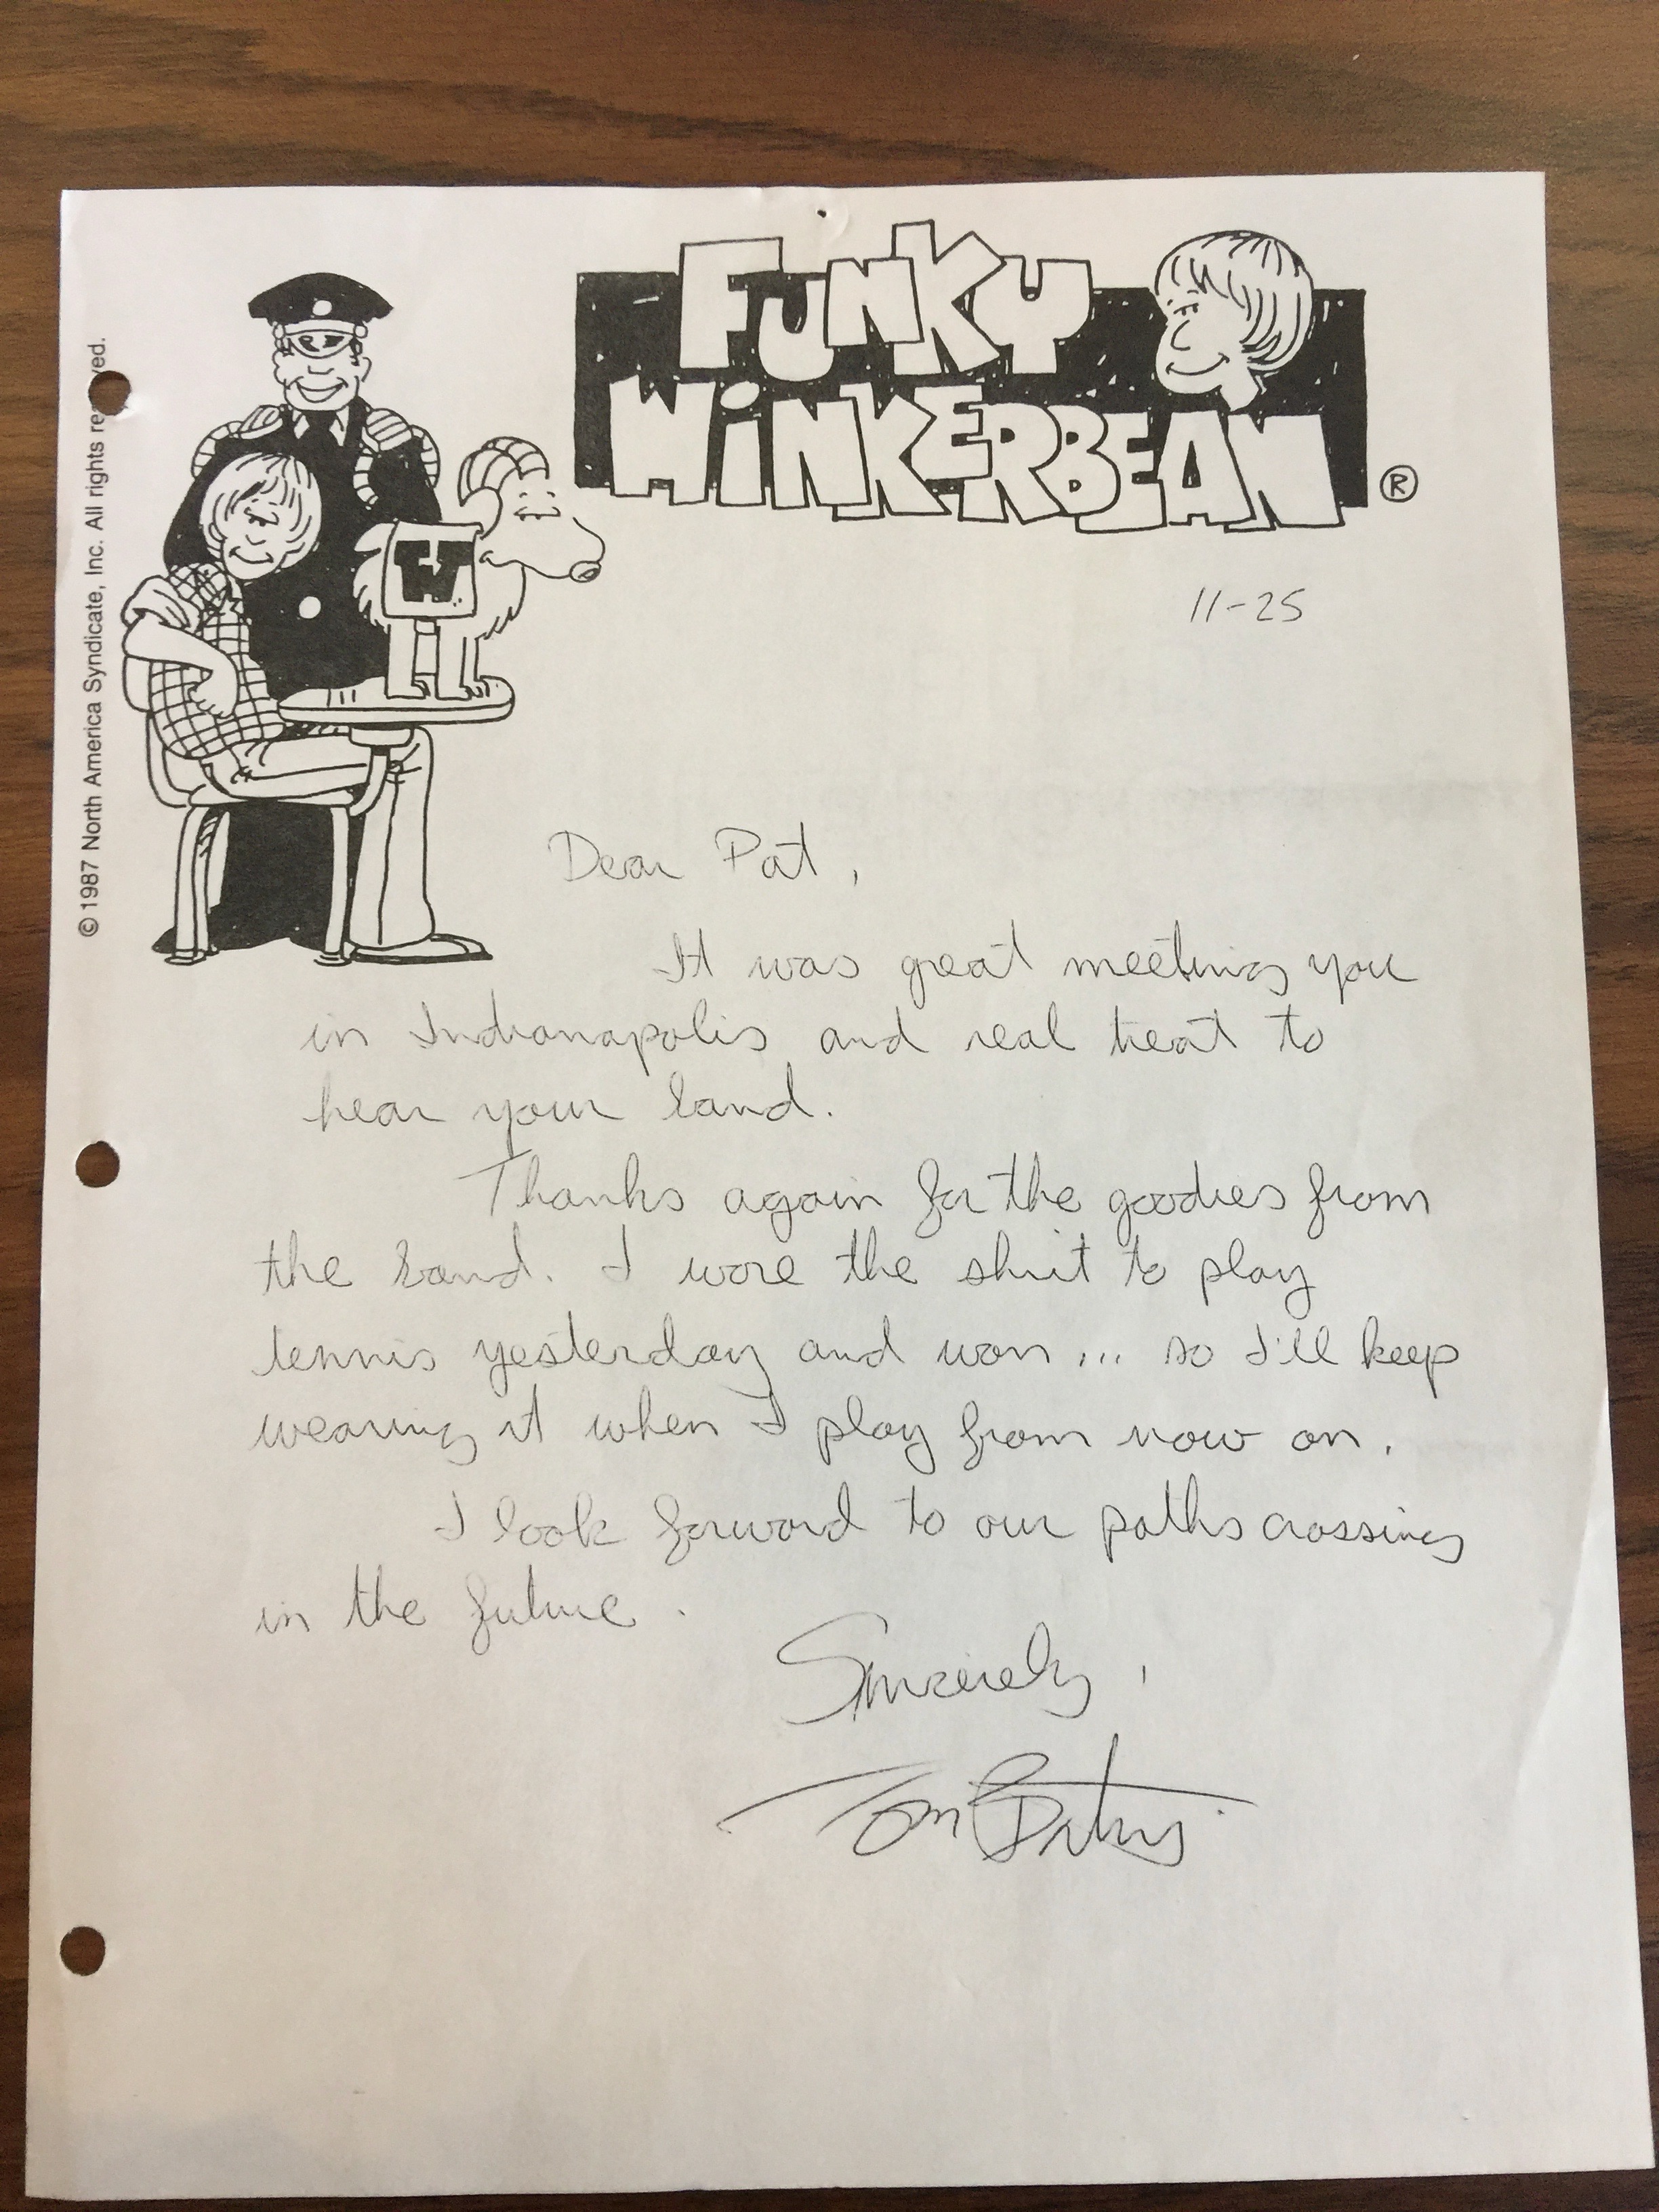 FUNKY
WINKERBEAN
®
© 1987 North America Syndicate, Inc. All rights re ved.
W
11-25
Dear Pat,
It was great meeting you
in Indianapolis and real treat to
hear your band.
Thanks again for the goodies from
the band. I wore the shirt to play
tennis yesterday and won... so I'll keep
wearing it when I play from now on.
I look forward to our paths crossing
in the future.
Sincerely,
Tom Batiuk